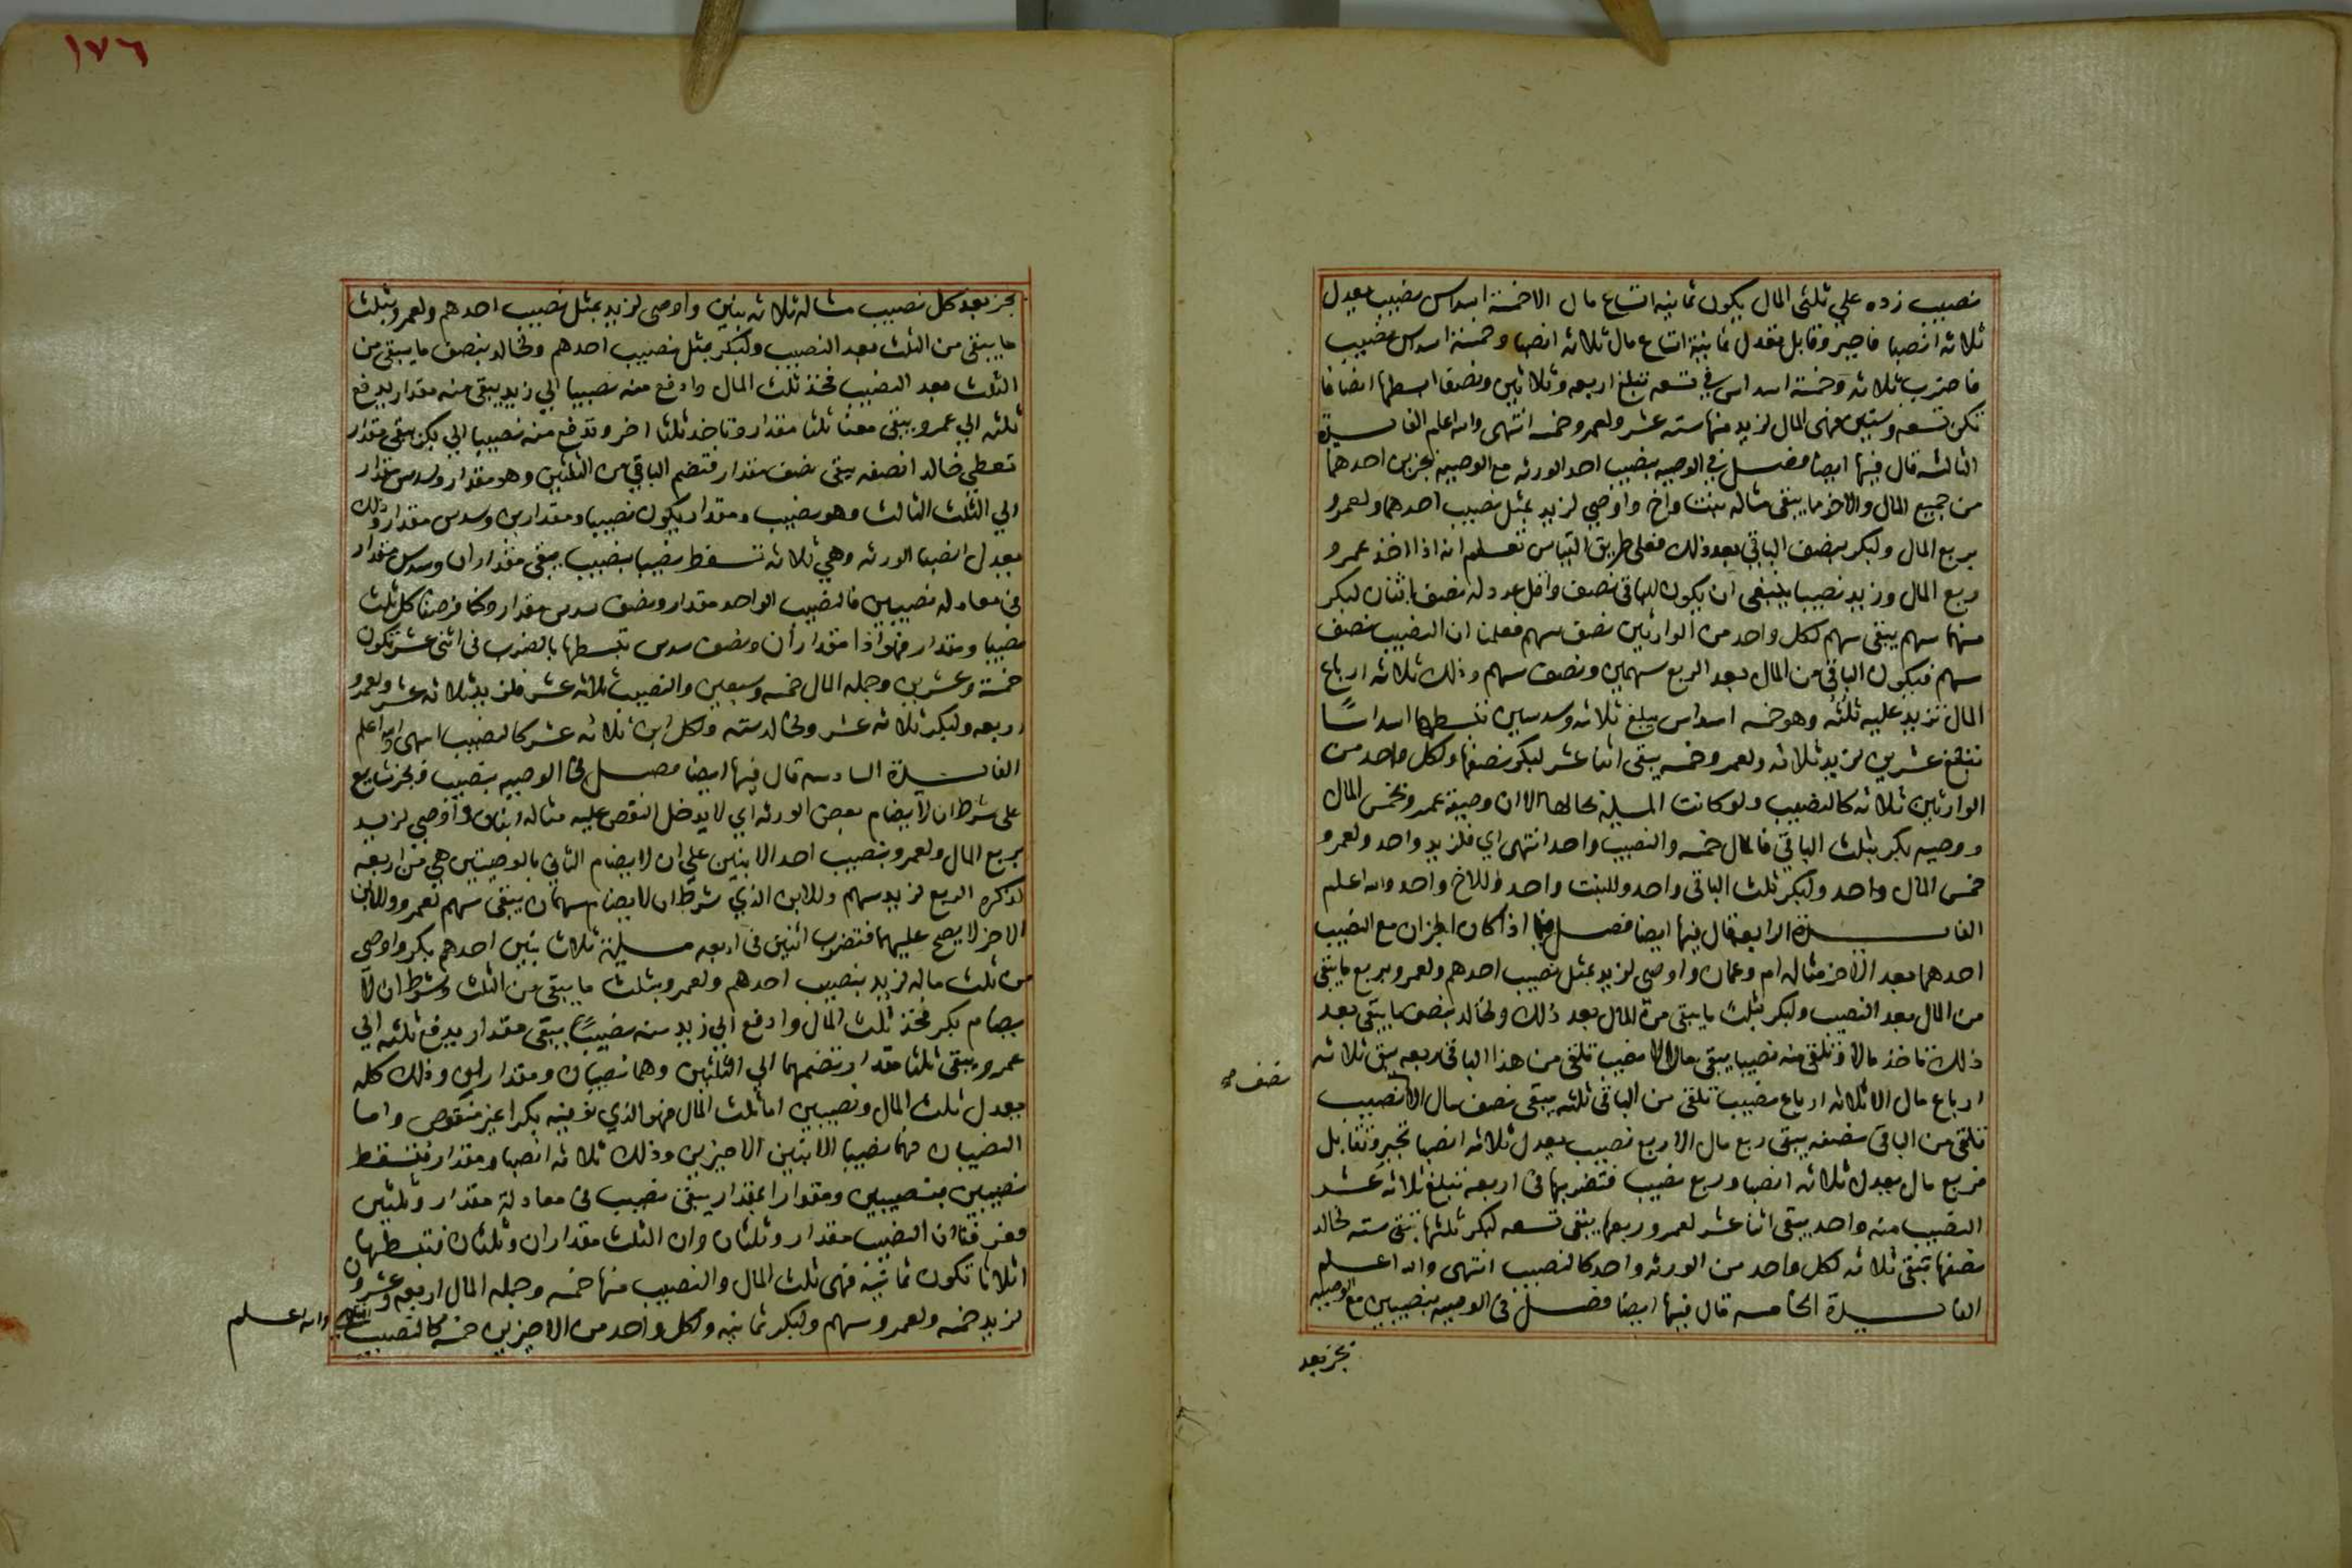 نصيب زده علي ثلثى المال يكون ثمانية اتساع مال الا خمسة اسداس نصيب يعدل
ثلاثه انصبا فاجبر وقابل فقدل ثمانية اتساع مال ثلاثه انصبا وخمسة اسداس نصيب
فاضرب ثلاثه وخمسة اسداس في تسعه تبلغ اربعه وثلاثين ونصفا ابسطها انصافا
تكن تسعه وستين فهي المال لزيد منها سته عشر ولعمرو خمسه انتهى والله اعلم الفايدة
الثالثه قال فيها ايضا فصل في الوصيه بنصيب احد الورثه مع الوصيه بجزين احدهما
من جميع المال والاخر ما يبقى مثاله بنت واخ واوصي لزيد بمثل نصيب احدهما ولعمرو
بربع المال ولبكر بنصف الباقي بعد ذلك فعلى طريق القياس تعلم انه اذا اخذ عمرو
ربع المال وزيد نصيبا ينبغى ان يكون للباقى نصف واقل عدد له نصف اثنان لبكر
منها سهم يبقى سهم لكل واحد من الوارثين نصف سهم فعلمنا ان النصيب نصف
سهم فيكون الباقى من المال بعد الربع سهمين ونصف سهم وذلك ثلاثه ارباع
المال تزيد عليه ثلثه وهو خمسه اسداس يبلغ ثلاثه وسدسين تبسطها اسداسًا
تبلغ عشرين لزيد ثلاثه ولعمرو خمسه يبقى اثنا عشر لبكر نصفها ولكل واحد من
الوارثين ثلاثه كالنصيب ولو كانت المسيلة بحالها الا ان وصية عمرو بخمس المال
ووصيه بكر بثلث الباقي فالمال خمسه والنصيب واحد انتهى اي فلزيد واحد ولعمرو
خمس المال واحد ولبكر ثلث الباقى واحد وللبنت واحد وللاخ واحد والله اعلم
الفايدة الرابعه قال فيها ايضا فصل فيما اذا كان الجزان مع النصيب
احدهما بعد الاخر مثاله ام وعمان واوصى لزيد بمثل نصيب احدهم ولعمرو بربع ما يبقى
من المال بعد النصيب ولبكر بثلث ما يبقى من المال بعد ذلك ولخالد بنصف ما يبقى بعد
ذلك تاخذ مالا وتلقى منه نصيبا يبقى مال الا نصيب تلقى من هذا الباقى ربعه يبقى ثلاثه
ارباع مال الا ثلاثه ارباع نصيب تلقى من الباقى ثلثه يبقى نصف مال الا نصيب
نصف صح
تلقى من الباقى نصفه يبقى ربع مال الا ربع نصيب يعدل ثلاثه انصبا تجبر وتقابل
فربع مال يعدل ثلاثه انصبا وربع نصيب فتضربها فى اربعه تبلغ ثلاثه عشر
النصيب منه واحد يبقى اثنا عشر لعمرو ربعها يبقى تسعه لبكر ثلثها تبقى سته لخالد
نصفها تبقى ثلاثه لكل واحد من الورثه واحد كالنصيب انتهى والله اعلم
الفايدة الخامسه قال فيها ايضا فصل فى الوصيه بنصيبين مع الوصيه
بجز بعد
١٧٦
بجز بعد كل نصيب مثاله ثلاثه بنين واوصى لزيد بمثل نصيب احدهم ولعمرو بثلث
ما يبقى من الثلث بعد النصيب ولبكر بمثل نصيب احدهم ولخالد بنصف ما يبقى من
الثلث بعد النصيب فخذ ثلث المال وادفع منه نصيبا الي زيد يبقى منه مقدار يدفع
ثلثه الي عمرو يبقى معنا ثلثا مقدار وتاخذ ثلثا اخر وتدفع منه نصيبا الي بكر يبقى مقدار
تعطي خالدا نصفه يبقى نصف مقدار فتضم الباقي من الثلثين وهو مقدار وسدس مقدار
الي الثلث الثالث وهو نصيب ومقدار يكون نصيبا ومقدارين وسدس مقدار وذلك
يعدل انصبا الورثه وهي ثلاثه تسقط نصيبا بنصيب يبقى مقداران وسدس مقدار
فى معادله نصيبين فالنصيب الواحد مقدار ونصف سدس مقدار وكنا فرضنا كل ثلث
نصيبا ومقدار فهو اذا مقداران ونصف سدس تبسطها بالضرب فى اثنى عشر تكون
خمسة وعشرين وجمله المال خمسه وسبعين والنصيب ثلاثه عشر فلزيد ثلاثه عشر ولعمرو
اربعه ولبكر ثلاثه عشر ولخالد سته ولكل ابن ثلاثه عشر كالنصيب انتهى والله اعلم
الفايدة السادسه قال فيها ايضا فصل فى الوصيه بنصيب وبجز شايع
على شرط ان لا يضام بعض الورثه اي لا يدخل النقص عليه مثاله ابنان واوصي لزيد
بربع المال ولعمرو بنصيب احد الابنين علي ان لا يضام الثاني بالوصيتين هي من اربعه
لذكره الربع لزيد سهم وللابن الذي شرط ان لا يضام سهمان يبقى سهم لعمرو وللابن
الاخر لا يصح عليهما فتضرب اثنين فى اربعه مسيلة ثلاث بنين احدهم بكر واوصى
من ثلث ماله لزيد بنصيب احدهم ولعمرو بثلث ما يبقى من الثلث وشرط ان لا
يضام بكر فخذ ثلث المال وادفع الي زيد منه نصيبًا يبقى مقدار يدفع ثلثه الي
عمرو يبقى ثلثا مقدار تضمهما الي الثلثين وهما نصيبان ومقداران وذلك كله
يعدل ثلث المال ونصيبين اما ثلث المال فهو الذي نوفيه بكرا غير منقوص واما
النصيبان فهما نصيبا الابنين الاخيرين وذلك ثلاثه انصبا ومقدار فتسقط
نصيبين بنصيبين ومقدارا بمقدار يبقى نصيب فى معادلة مقدار وثلثين
فعرفنا ان النصيب مقدار وثلثان وان الثلث مقداران وثلثان فتبسطها
اثلاثا تكون ثمانية فهى ثلث المال والنصيب منها خمسه وجمله المال اربعه وعشرون
لزيد خمسه ولعمرو سهم ولبكر ثمانيه ولكل واحد من الاخرين خمسه كالنصيب انتهى والله اعلم